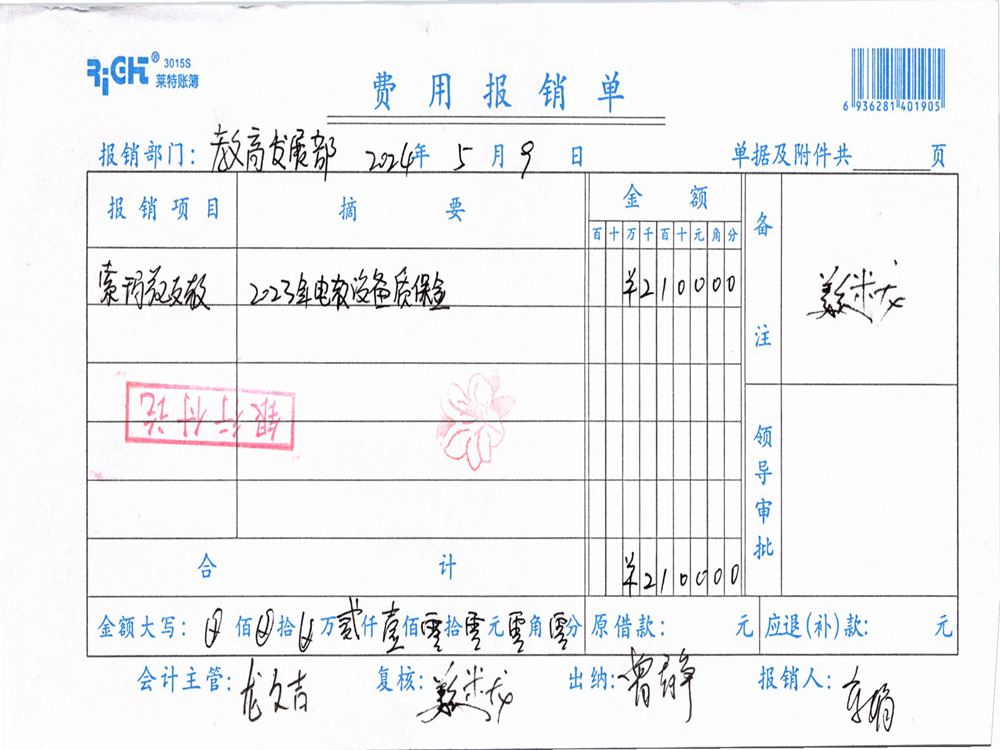 RiGHT® 3015S
莱特账簿
费用报销单
6 936281 401905
报销部门：教育发展部 2024年 5 月 9 日 单据及附件共 页
报销项目 摘要 金额 备注
百 十 万 千 百 十 元 角 分
2023年电教设备质保金 ¥210000
银行付讫
领导审批
合计 ¥210000
金额大写： 佰 拾 万 贰仟 壹佰 零拾 零元 零角 零分 原借款： 元 应退(补)款： 元
会计主管：龙久吉 复核： 出纳：曾静 报销人：